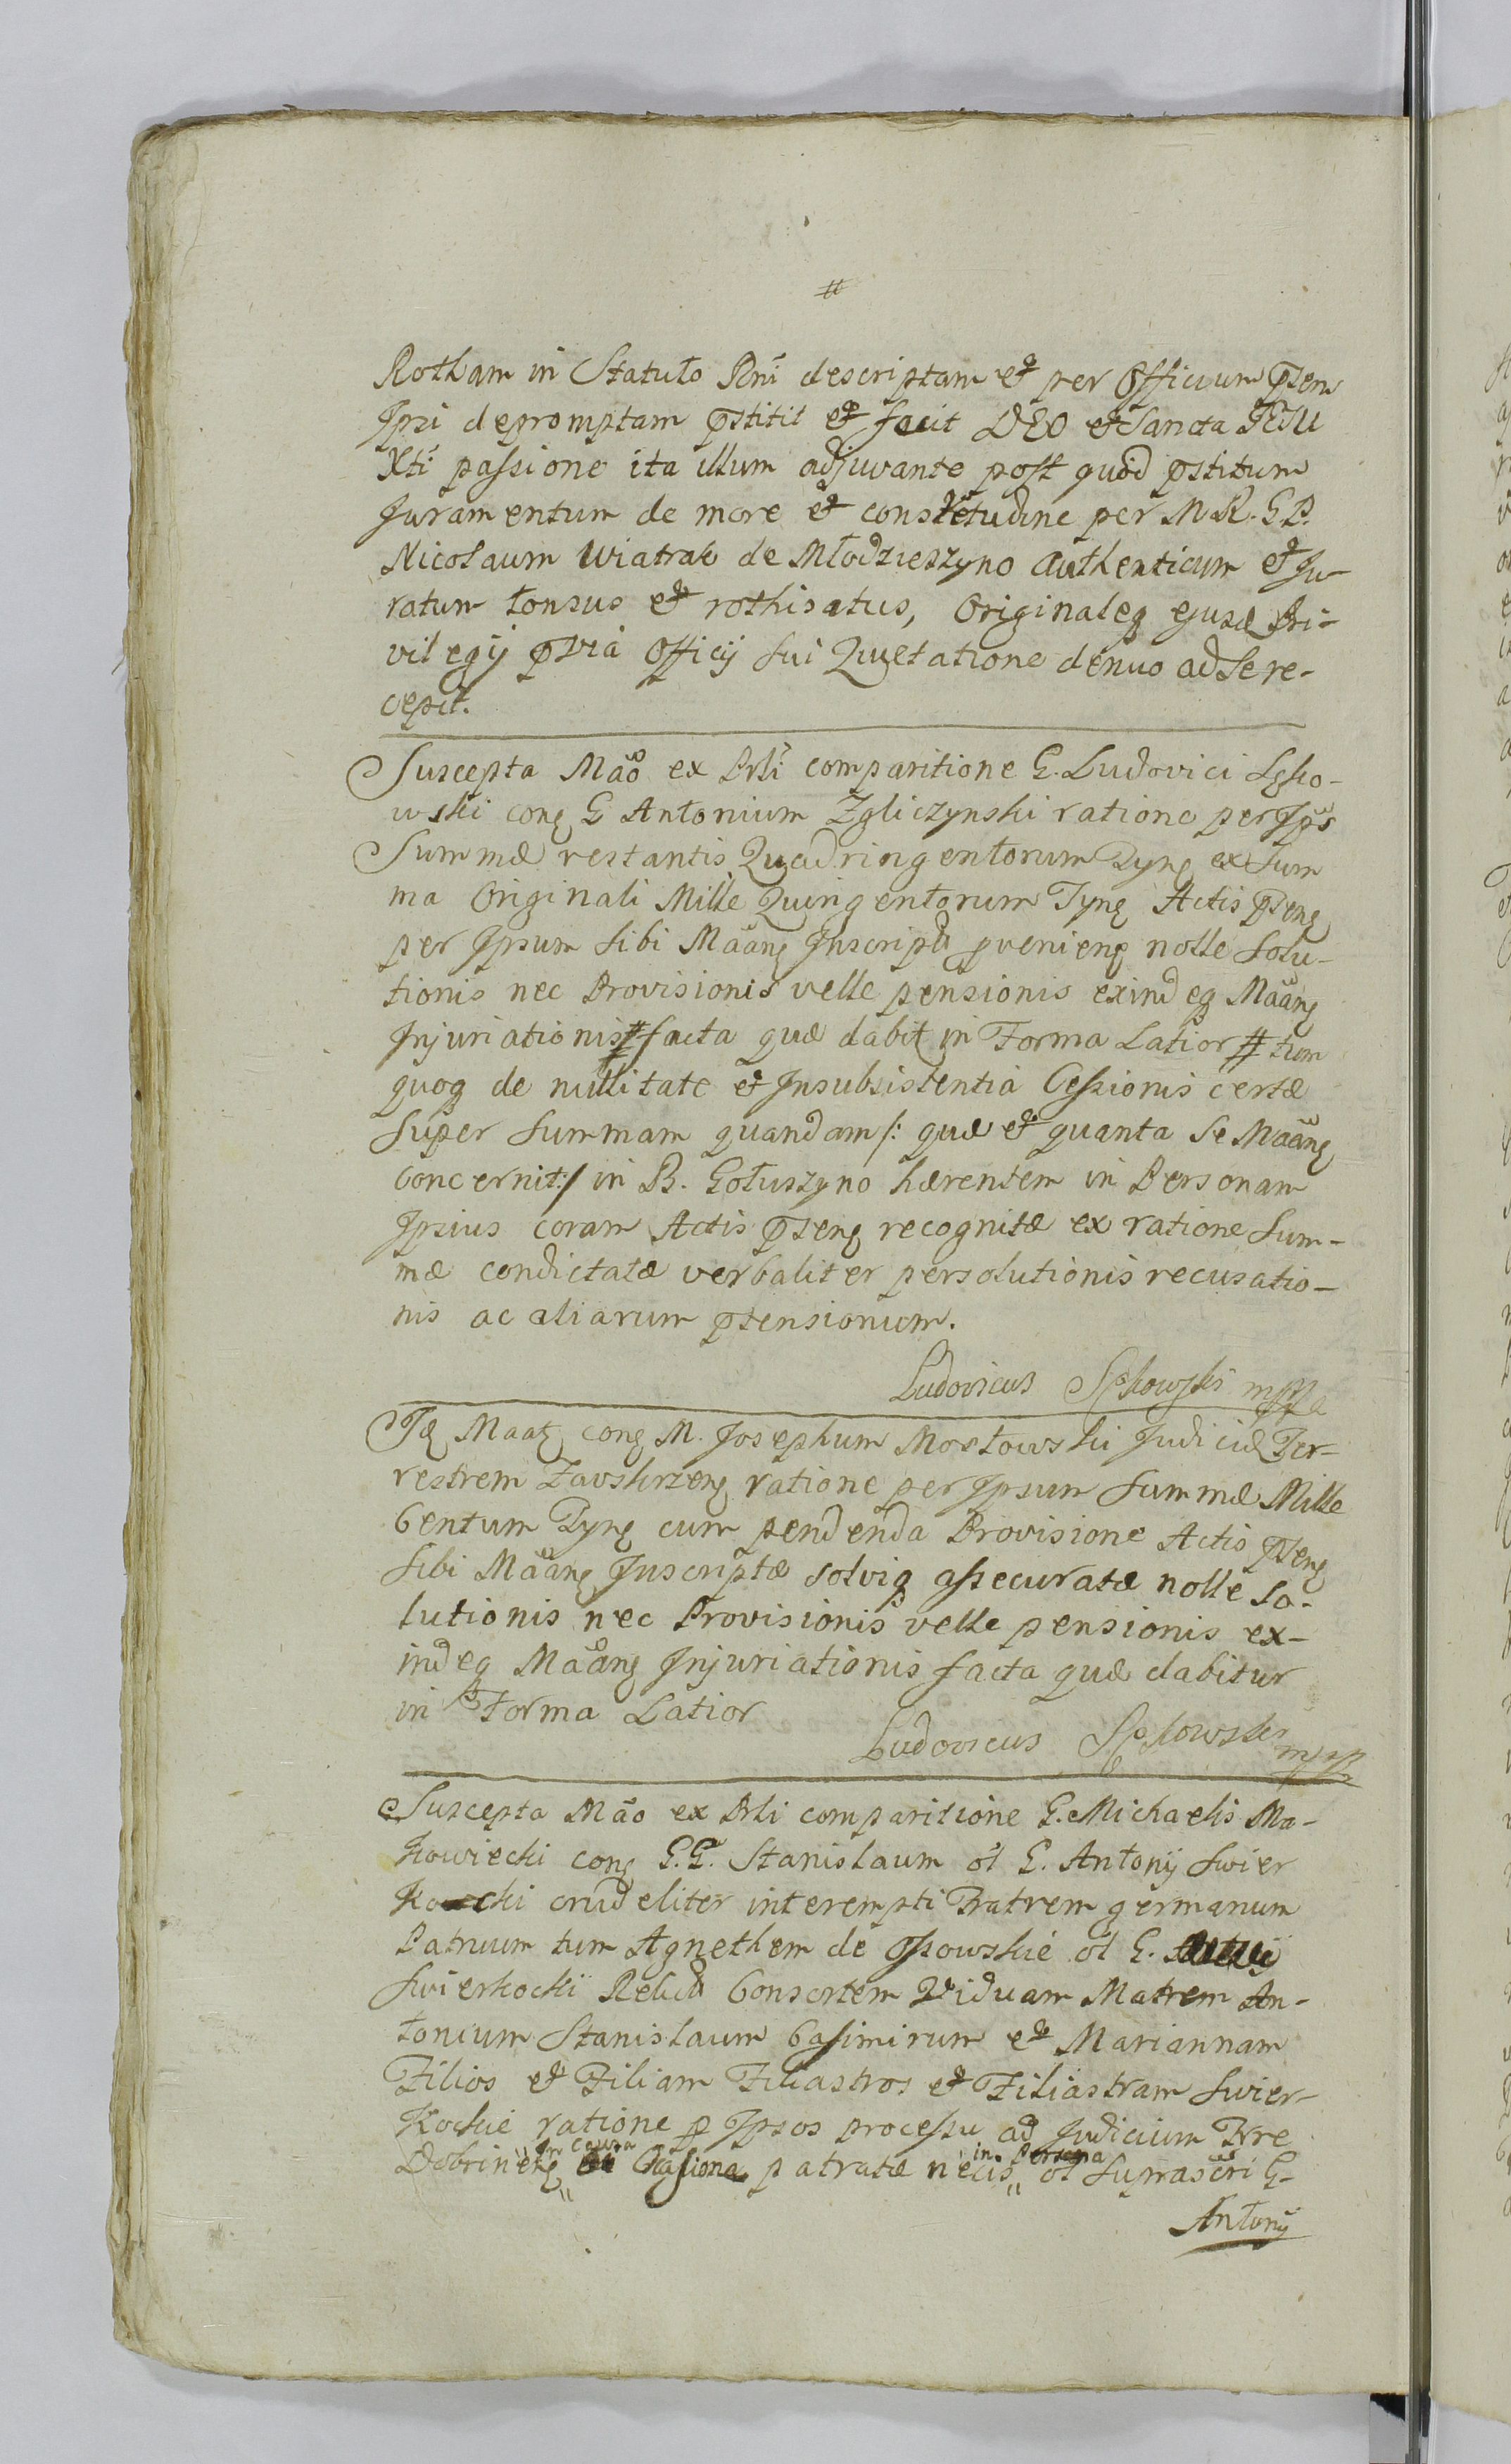 #
Rotham in Statuto Rni descriptam et per Officium pñsens
Ipsi depromptam pstitit et fecit DEO et Sancta JESU
Xti passione ita illum adjuvante post quod pstitum
Juramentum de more et consvetudine per M. R. G. P.
Nicolaum Wiatrak de Młodzieszyno Authenticum et Ju-
ratum tonsus et rothisatus, Originaleq ejusd Pri-
vilegij pvia Officij sui Quietatione denuo ad se re-
cepit.
Suscepta Mão ex Prli comparitione G. Ludovici
wski conq G Antonium Zgliczynski ratione per Ipsũ
Summæ restantis Quadringentorum Tynq ex Sum
ma Originali Mille Quingentorum Tynq Actis pñtenq
per Ipsum sibi Mãanq Inscriptæ pvenienq nolle Solu-
tionis nec Provisionis velle pensionis exindeq Mãanq
Injuriationis # facta quæ dabit in Forma Latior # tum
quoq de nullitate et Insubsistentia Cessionis certæ
super summam quandam /: quæ et quanta se Mãanq
concernit :/ in B. Gołuszyno hærentem in Personam
Ipsius coram Actis pñtenq recognitæ ex ratione Sum-
mæ condictatæ verbaliter persolutionis recusatio-
nis ac aliarum ptensionum.
Ludovicus mpp
Tq Maatq conq M. Josephum Mostowski Judicem Ter-
restrem Zavskrzenq ratione per Ipsum Summæ Mille
Centum Tynq cum pendenda Provisione Actis pñtenq
sibi Mãanq Inscriptæ solviq assecuratæ nolle So-
lutionis nec Provisionis velle pensionis ex-
indeq Mãanq Injuriationis facta quæ dabitur
in Forma Latior
Ludovicus mpp
Suscepta Mão ex Prli comparitione G. Michaelis Ma-
kowiecki conq G.G. Stanislaum ol G. Antonij Swier
kocki crudeliter interempti Fratrem germanum
Patruum tum Agnethem de Ossowskie ol G.
Swierkocki Relictã Consortem Viduam Matrem An-
tonium Stanislaum Casimirum et Mariannam
Filios et Filiam Filiastros et Filiastram Swier-
kockie ratione p Ipsos processu ad Judicium Trre
Dobrinenq in causa patratæ necis in Persona ol Suprascri G-
Antonij